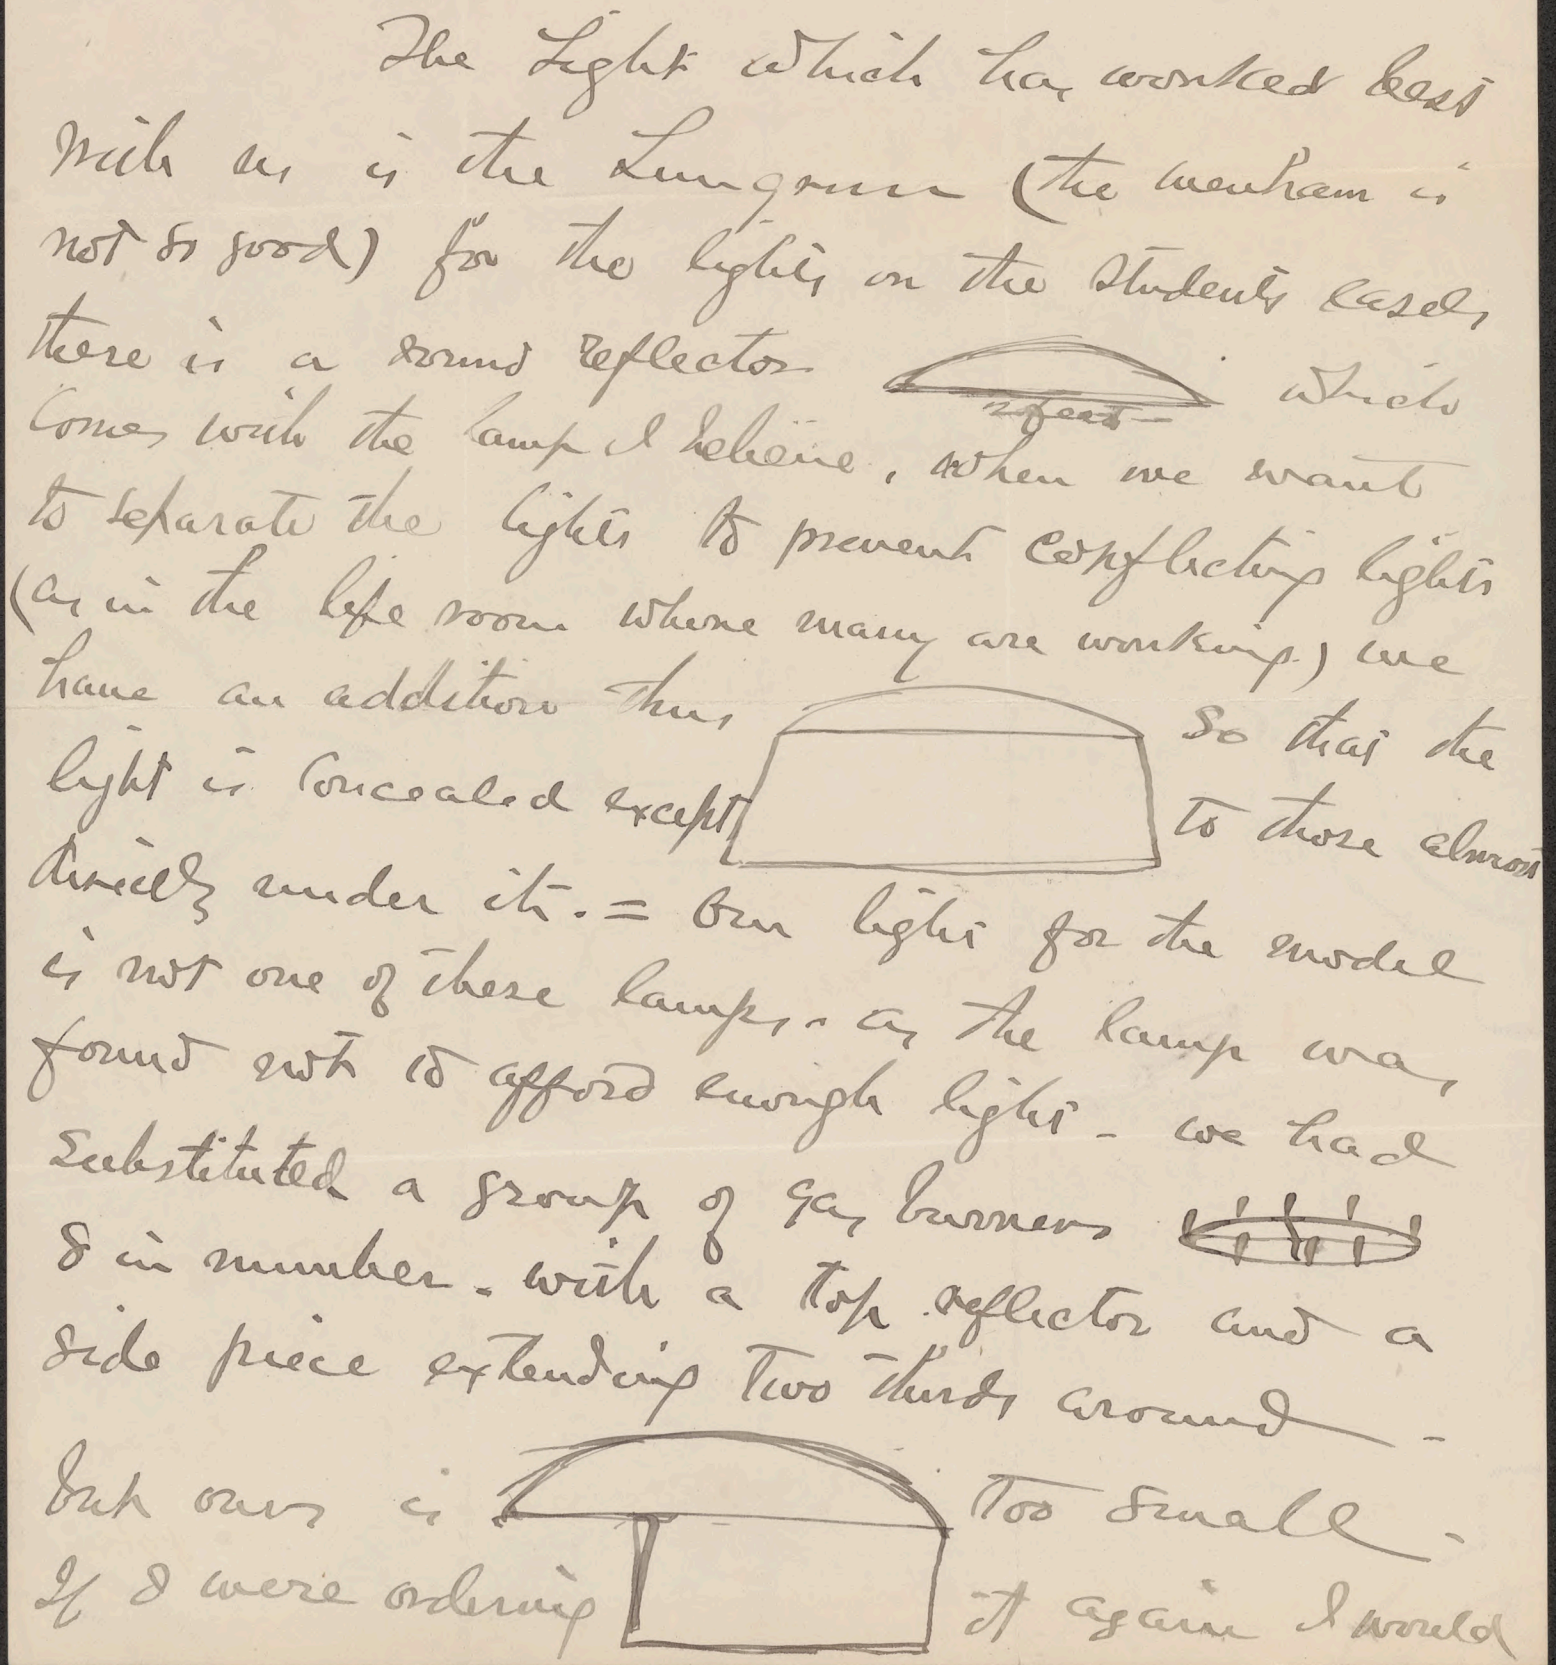 The Light which has worked best
with us is the Lungren (the Wenham is
not so good) for the lights on the students easels
there is a round reflector which
2 feet
comes with the lamp I believe, when we want
to separate the lights to prevent conflicting lights
(as in the life room where many are working) we
have an addition thus so that the
light is concealed except to those almost
directly under it. = Our light for the model
is not one of these lamps - as the lamp was
found not to afford enough light - we had
substituted a group of gas burners
8 in number - with a top reflector and a
side piece extending two thirds around -
but ours is too small -
If I were ordering it again I would